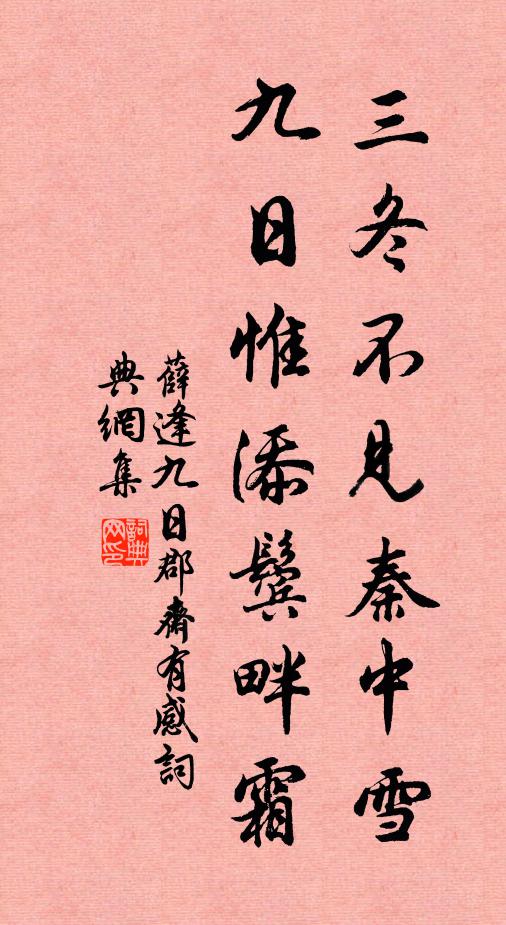 三冬不見秦中雪
九日惟添鬢畔霜
薛逢九日郡齋有感詞
典網集
詞典
网印